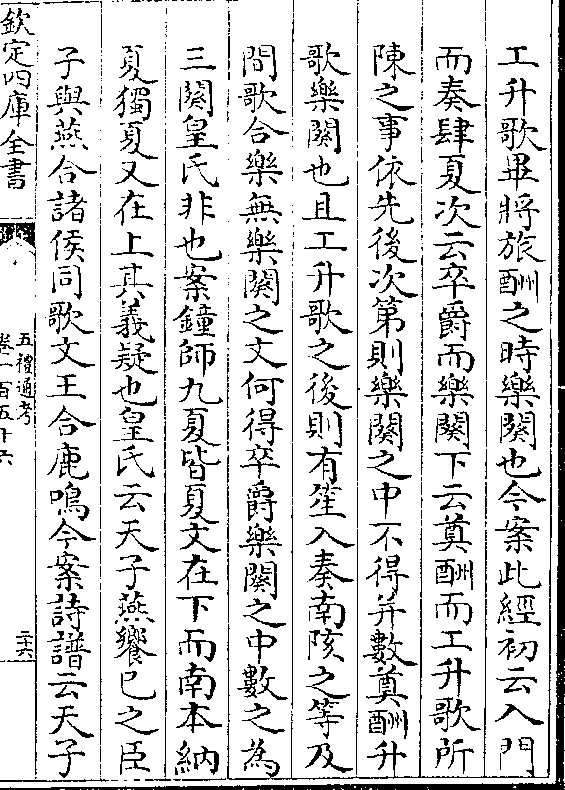 工升歌畢將旅酬之時樂闋也今案此經初云入門
而奏肆夏次云卒爵而樂闋下云奠酬而工升歌所
陳之事依先後次第則樂闋之中不得并數奠酬升
歌樂闋也且工升歌之後則有笙入奏南陔之等及
間歌合樂無樂闋之文何得卒爵樂闋之中數之為
三闋皇氏非也案鐘師九夏皆夏文在下而南本納
夏獨夏又在上其義疑也皇氏云天子燕饗已之臣
子與燕合諸侯同歌文王合鹿鳴今案詩譜云天子
欽定四庫全書
五禮通考
卷一百五十六
三十六